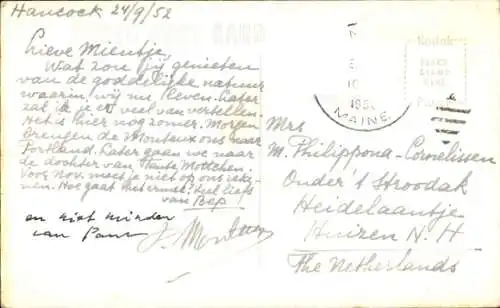 Hancock 24/9/52
Lieve Mientje,
Wat zou jij genieten
van de goddelijke natuur
waarin wij nu leven. Later
zal ik je er veel van vertellen.
Het is hier nog zomer. Morgen
brengen de Monteux ons naar
Portland. Later gaan we naar
de dochter van Tante
Voor Nov. moet je niet op ons
Hoe gaat het ermee? Veel liefs
van Bep!
en niet minder
van
MAINE
Kodak
PLACE
STAMP
HERE
Mrs
M. Philippona-Cornelissen
Onder 't Stroodak
Heidelaantje
Huizen N. H
The Netherlands